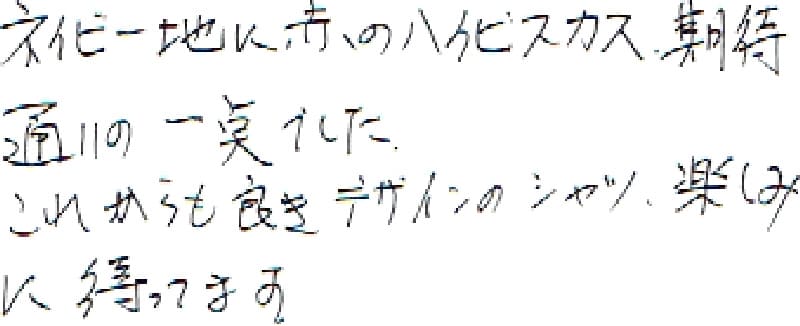 ネイビー地に赤いのハイビスカス、期待
通りの一点でした。
これからも良きデザインのシャツ、楽しみ
に待ってます